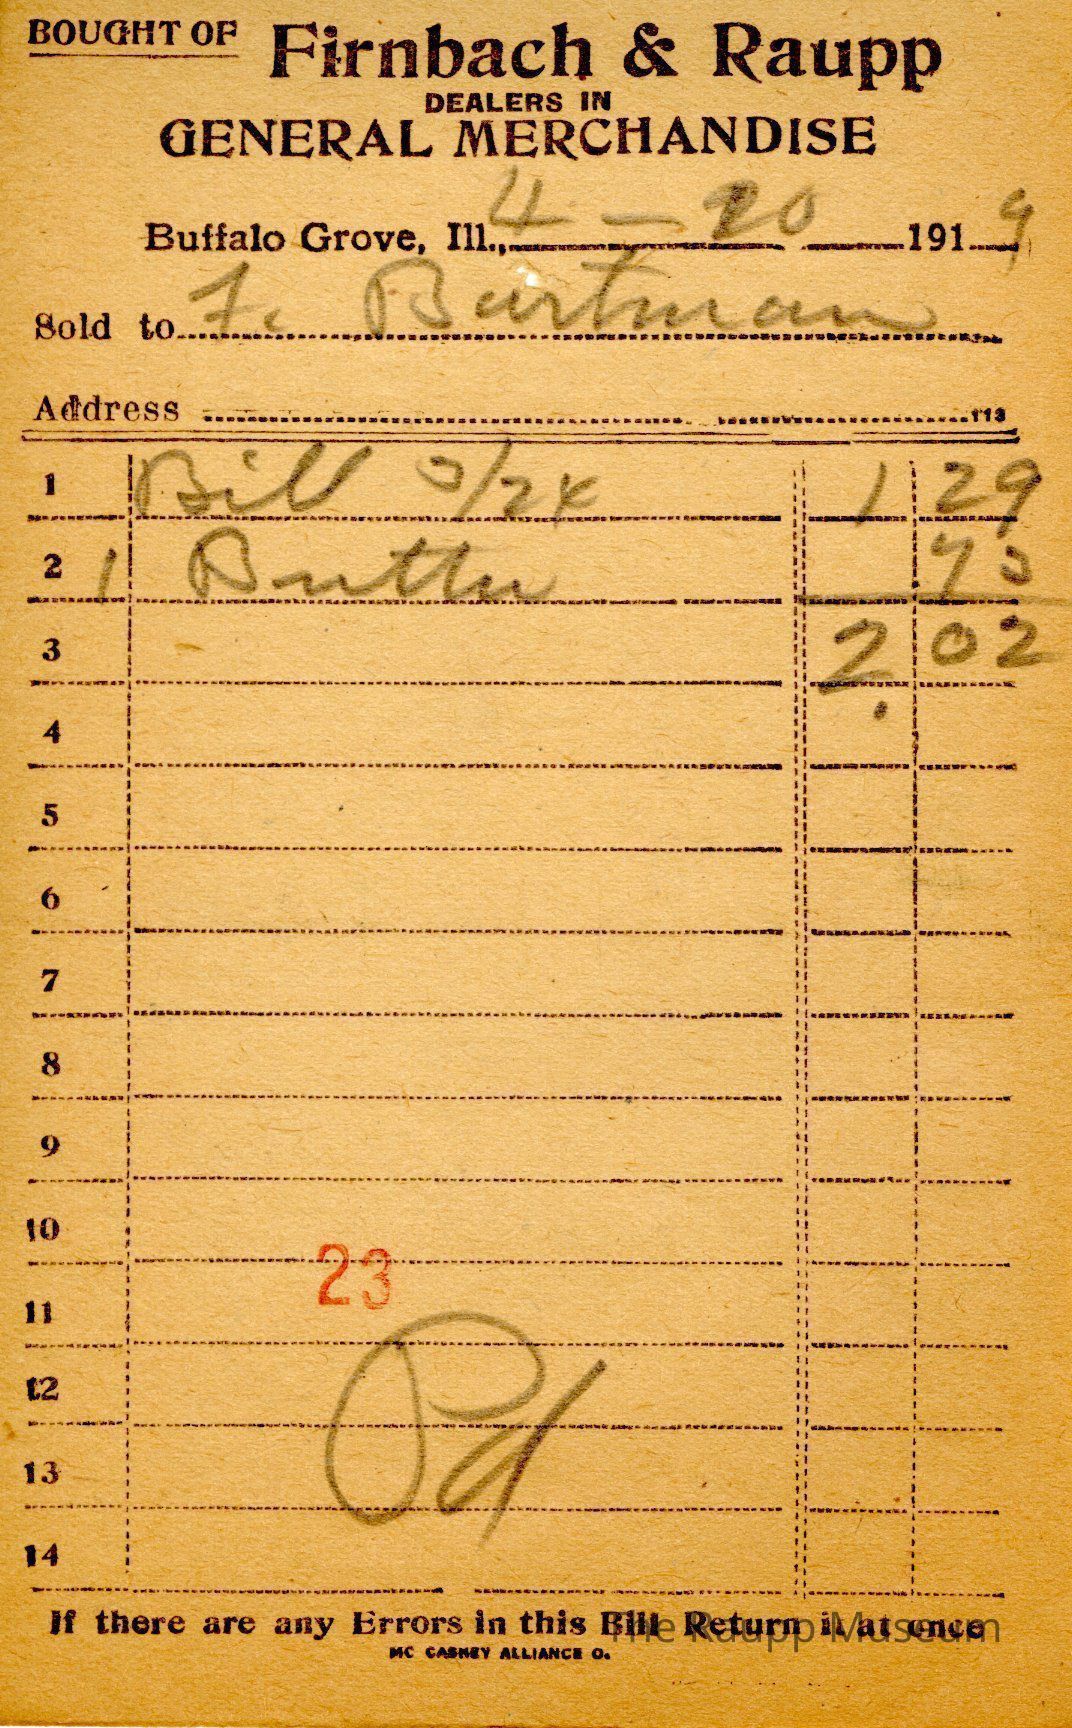 BOUGHT OF Firnbach & Raupp
DEALERS IN
GENERAL MERCHANDISE
Buffalo Grove, Ill., 4 – 20 1919
Sold to F. Bartman
Address 113
1 Bill 3/24 1 29
2 1 Butter 73
3 2. 02
4
5
6
7
8
9
10
23
11
12
Pd
13
14
If there are any Errors in this Bill Return it at once
The Raupp Museum
MC CASKEY ALLIANCE O.